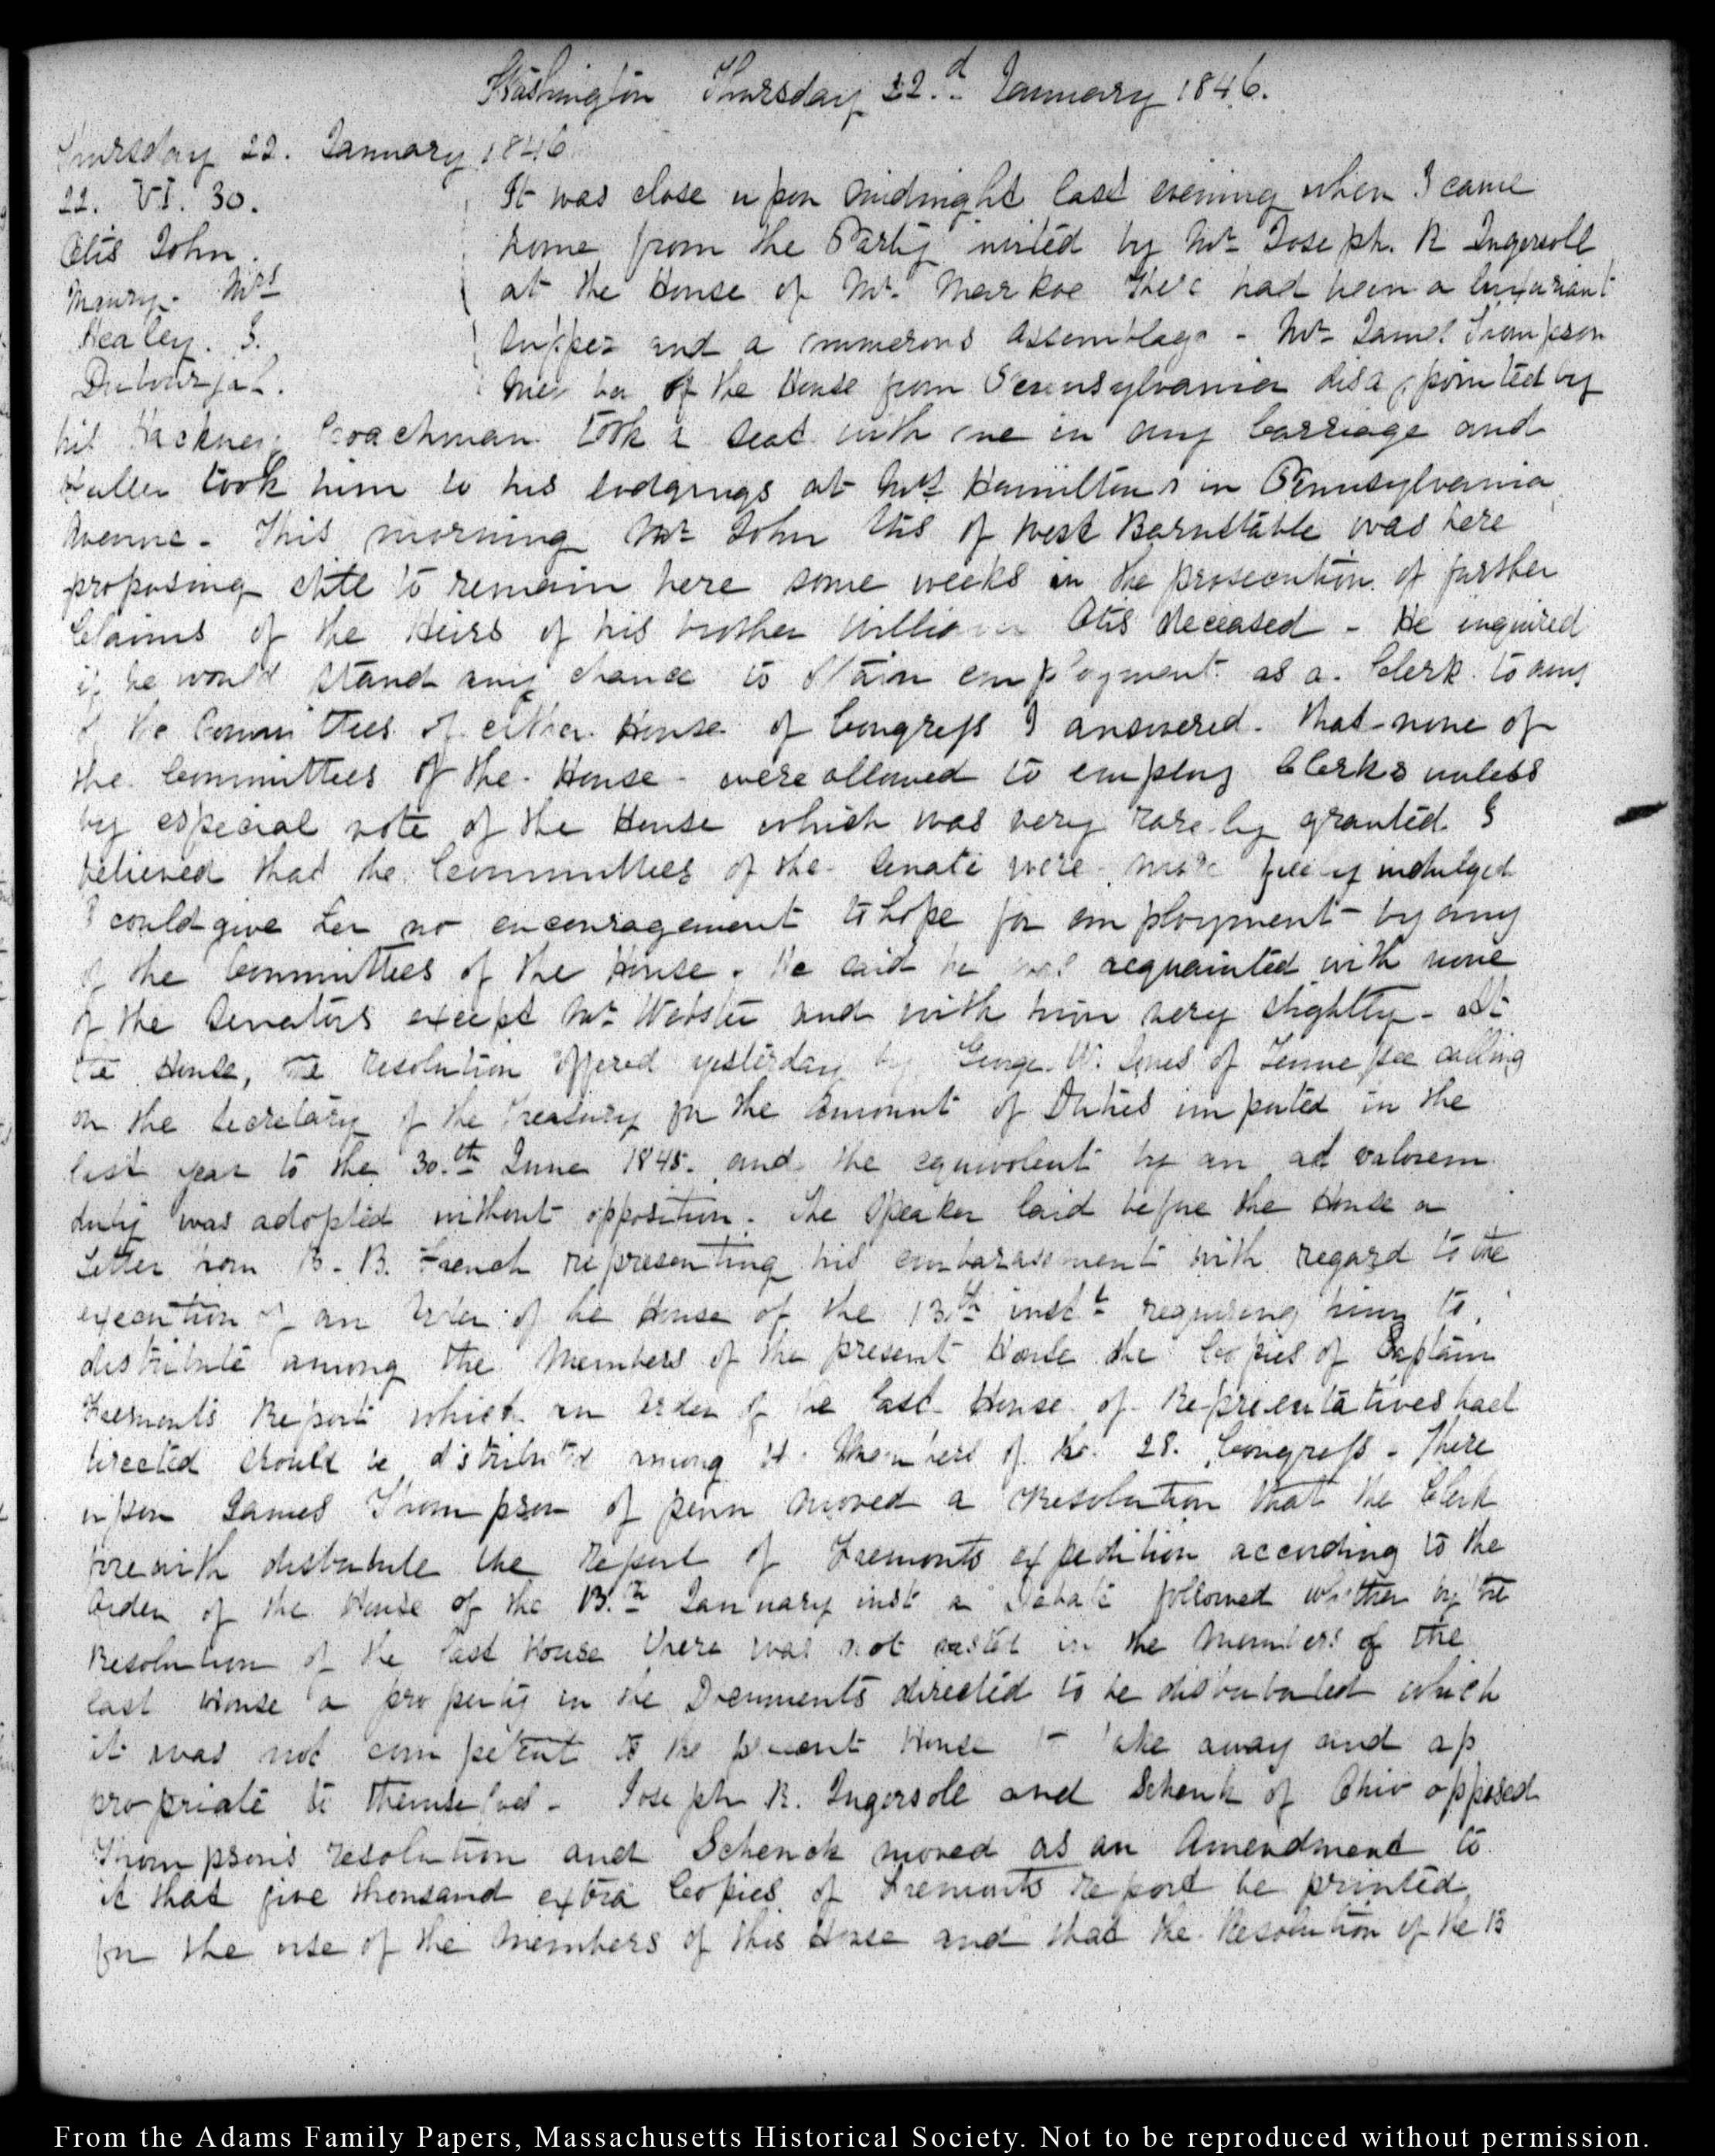 Washington Thursday 22.d January 1846.
Thursday 22. January 1846
22. VI. 30.
Otis John.
Maury. Mrs
Healey. G.
It was close upon midnight last evening when I came
home from the Party invited by Mr Joseph. R Ingersoll
at the House of Mr Markoe there had been a luxuriant
supper and a numerous assemblage - Mr James Thompson
member of the House from Pennsylvania disappointed by
his Hackney Coachman took a seat with me in my Carriage and
took him to his lodgings at Mrs Hamiltons in Pennsylvania
Avenue - This morning Mr John Otis of West Barnstable was here
proposing to remain here some weeks in the prosecution of further
Claims of the Heirs of his brother William Otis deceased - He inquired
if he would stand any chance to obtain employment as a Clerk to any
of the Committees of either House of Congress I answered that none of
the Committees of the House were allowed to employ Clerks unless
by especial vote of the House which was very rarely granted I
believed that the Committees of the Senate were more freely indulged
I could give no encouragement to hope for employment by any
of the Committees of the House. He said he was acquainted with none
of the Senators except Mr Webster and with him very slightly - At
the House, the resolution offered yesterday by George W. Jones of Tennessee calling
on the Secretary of the Treasury for the amount of Duties imported in the
last year to the 30.th June 1845. and the equivolent by an ad valorem
duty was adopted without opposition. The Speaker laid before the House a
Letter from B. B. French representing his embarassment with regard to the
execution of an Order of the House of the 13th instt requiring him to
distribute among the Members of the present House the Copies of Captain
Fremonts Report which an order of the last House of Representatives had
directed should be distributed among the Members of the 28. Congress - There
upon James Thompson of penn moved a Resolution that the Clerk
forewith distribute the report of Fremonts expedition according to the
Order of the House of the 13.th January inst a Debate followed whether by the
Resolution of the last House there was not vested in the Members of the
last House a property in the Documents directed to be distributed which
it was not competent to the present House to take away and ap
propriate to themselves - Joseph R. Ingersoll and Schenk of Ohio opposed
Thompson's resolution and Schenck moved as an Amendment to
it that five thousand extra Copies of Fremonts report be printed
for the use of the Members of this House and that the Resolution of the 13
From the Adams Family Papers, Massachusetts Historical Society. Not to be reproduced without permission.